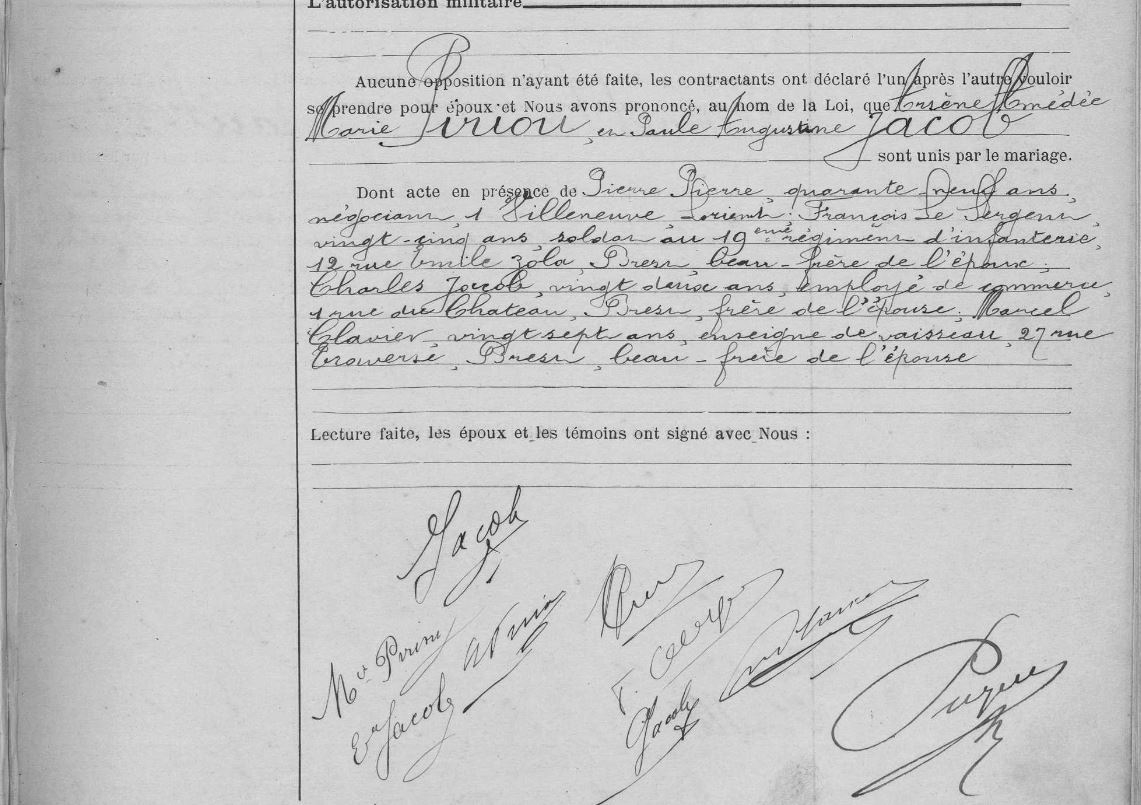 L'autorisation militaire
Aucune opposition n'ayant été faite, les contractants ont déclaré l'un après l'autre vouloir
se prendre pour époux et Nous avons prononcé, au nom de la Loi, que Arsène Amédée
Marie Piriou, et Paule Augustine Jacob
sont unis par le mariage.
Dont acte en présence de Pierre Pierre, quarante neuf ans,
négociant, 1 Villeneuve Lorient; François Le Sergent,
vingt-cinq ans, soldat au 19eme régiment d'infanterie,
12 rue Emile Zola, Brest, beau-frère de l'époux;
Charles Jacob, vingt deux ans, employé de commerce,
1 rue du Chateau, Brest, frère de l'épouse; Marcel
Clavier, vingt sept ans, enseigne de vaisseau, 27 rue
Traverse, Brest, beau-frère de l'épouse
Lecture faite, les époux et les témoins ont signé avec Nous :
Jacob
Jacob
Jacob